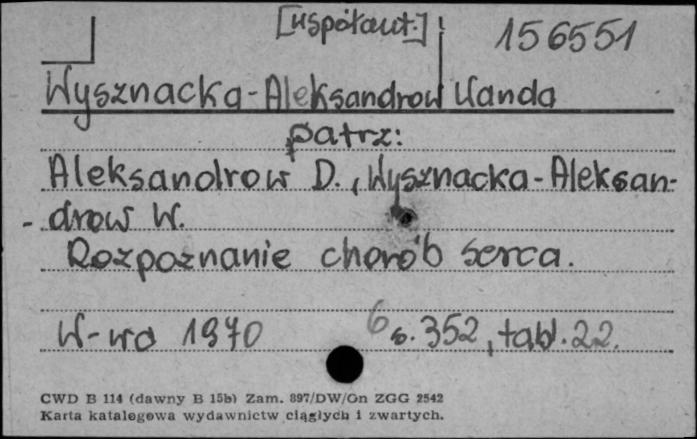 [współaut.] 156551
Wysznacka-Aleksandrow Wanda
patrz:
Aleksandrow D., Wysznacka-Aleksan-
- drow W.
Rozpoznanie chorób serca.
W-wa 1970 6 s. 352, tabl. 22.
CWD B 114 (dawny B 15b) Zam. 897/DW/Gn ZGG 2542
Karta katalogowa wydawnictw ciągłych i zwartych.